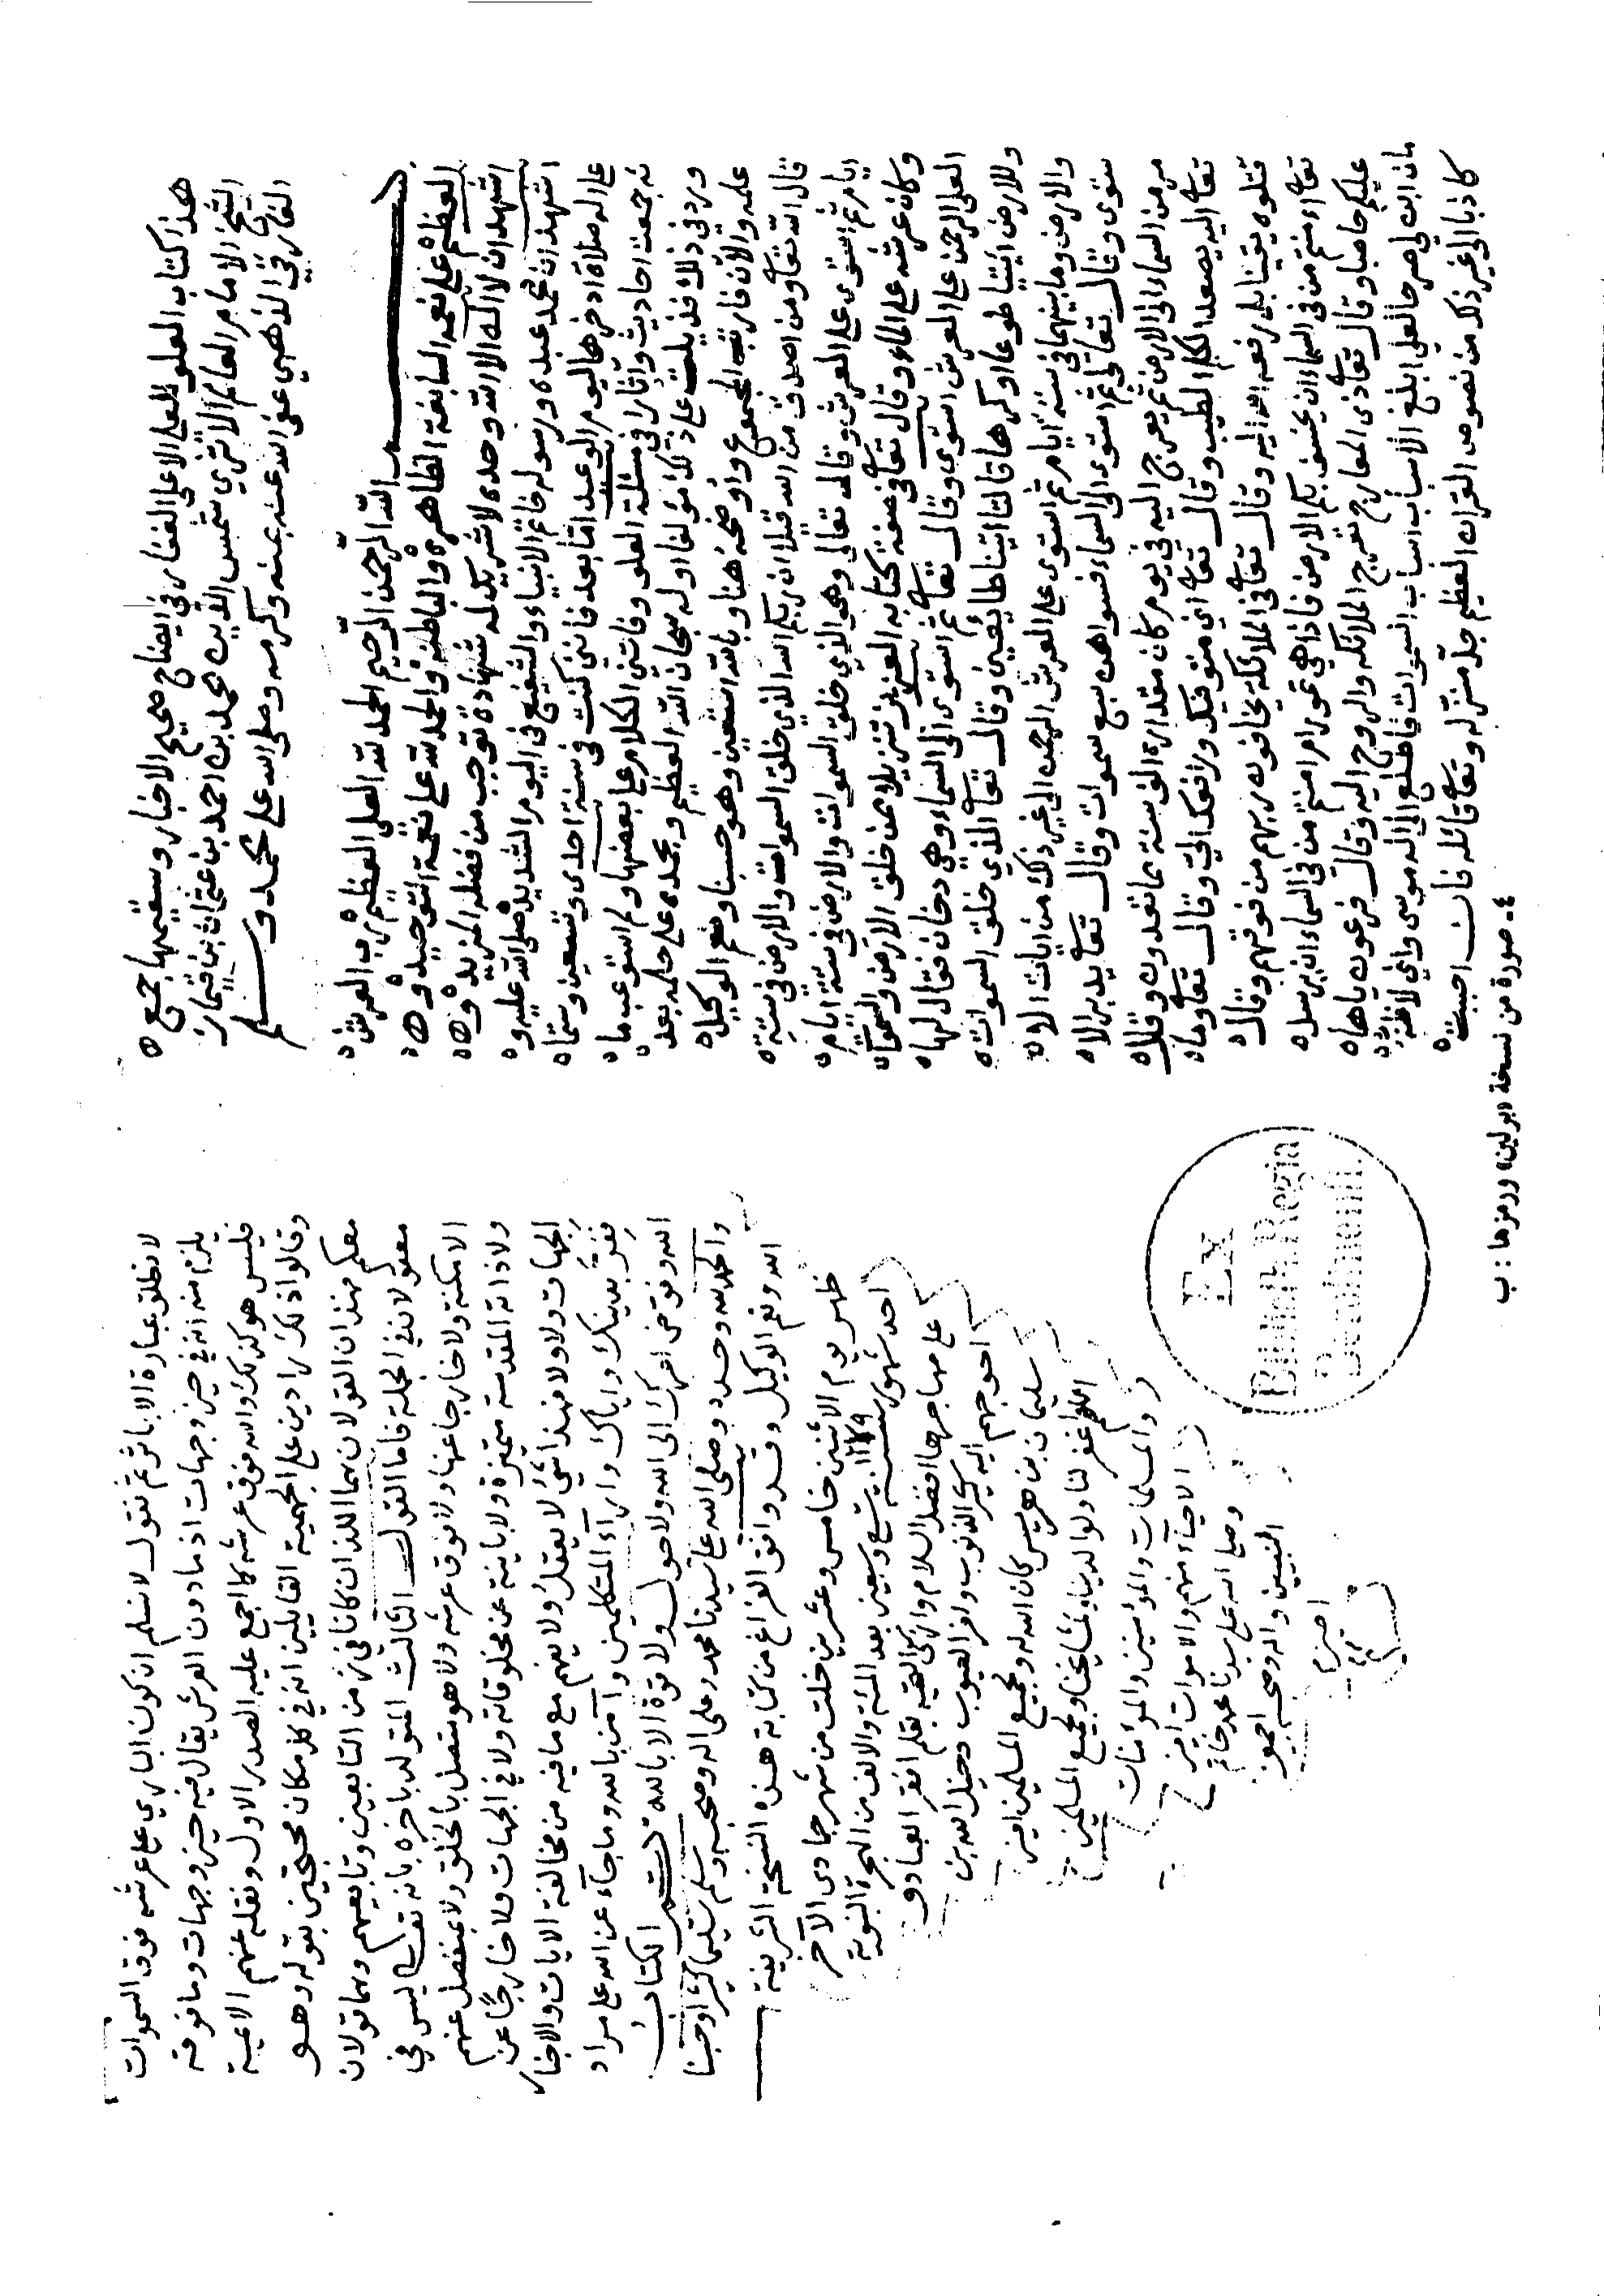 هذا كتاب العلو للعلي الاعلي الغفار في ايضاح صحيح الاخبار وسقيمها جمع
الشيخ الامام العالم الاثري شمس الدين محمد بن احمد بن عثمان بن قيماز
الفارقي الذهبي عفى الله عنه بمنه وكرمه وصلى الله على محمد وسلم
بسم الله الرحمن الرحيم الحمد لله العلي العظيم رب العرش
العظيم على نعمه السابغة الظاهرة والباطنة والحمد لله على نعمة التوحيد و
اشهد ان لا اله الا الله وحده لا شريك له شهادة توجب من فضله المزيد و
اشهد ان محمد عبده ورسوله خاتم الانبياء والشفيع في اليوم الشديد صلى الله عليه و
على اله صلاة ادخرها ليوم الوعيد اما بعد فانني كنت في سنة احدى وتسعين وستما
ئه جمعت احاديث واثارا في مسئلة العلو وفاتني الكلام على بعضها ولم استوعب ما
ورد في ذلك فذيلت على ذلك مؤلفا اوله سبحان الله العظيم وبحمده على حلمه بعد
علمه والآن فارتب المجموع واوضحه هنا وبالله استعين وهو حسبنا ونعم الوكيل
قال الله تعا ومن اصدق من الله قيلا ان ربكم الله الذي خلق السموات والارض في ستة
ايام ثم استوى على العرش وقال تعالى وهو الذي خلق السموات والارض في ستة ايام
وكان عرشه على الماء وقال تعا في صفة كتابه العزيز تنزيلا ممن خلق الارض والسموات
العلى الرحمن على العرش استوى وقال تعا ثم استوى الى السماء وهي دخان فقال لها
وللارض ائتيا طوعا او كرها قالتا اتينا طائعين وقال تعا الذي خلق السموات
والارض وما بينهما في ستة ايام ثم استوى على العرش الرحمن الى غير ذلك من ايات الا
ستوى وقال تعالى ثم استوى الى السماء فسواهن سبع سموات وقال تعا يدبر الا
مر من السماء الى الارض ثم يعرج اليه في يوم كان مقداره الف سنة مما تعدون وقال
تعا اليه يصعد الكلم الطيب وقال تعا اني متوفيك ورافعك الي وقال تعا وما
قتلوه يقينا بل رفعه الله اليه وقال تعا في الملائكة يخافون ربهم من فوقهم وقال
تعا ءامنتم من في السماء ان يخسف بكم الارض فاذا هي تمور ام امنتم من في السماء ان يرسل
عليكم حاصبا وقال تعا ذي المعارج تعرج الملائكه والروح اليه وقال فرعون ياها
مان ابن لي صرحا لعلي ابلغ الاسباب اسباب السموات فاطلع الى اله موسى واني لاظنه
كاذبا الى غير ذلك من نصوص القران العظيم جل منزله وتعا قائله فان احببت
٤- صورة من نسخة «برلين» ورمزها: ب
لا نطلق عبارة الا باثر ثم نقول لا نسلم ان كون الباري على عرشه فوق السموات
يلزم منه انه في حيز وجهات اذ ما دون العرش يقال فيه حيز وجهات وما فوقه
فليس هو كذلك والله فوق عرشه كما اجمع عليه الصدر الاول ونقله عنهم الائمة
وقالوا ذلك رادين على الجهمية القايلين انه في كل مكان محتجين بقوله وهو
معكم فهذان القولان هما اللذان كانا في زمن التابعين وتابعيهم وهما قولان
معقولان في الجملة فاما القول الثالث المتولد باخره بانه تعالى ليس في
الامكنة ولا خارجا عنها ولا فوق عرشه ولا هو متصل بالخلق ولا بمنفصل عنهم
ولا ذاته المقدسة متحيزة ولا باينة عن مخلوقاته ولا في الجهات ولا خارجا عن
الجهات ولا ولا فهذا شئ لا يعقل ولا يفهم مع ما فيه من مخالفة الايات والاخبار
ففر بدينك واياك وارآء المتكلمين وآمن بالله وما جآء عن الله على مراد
الله وفوض امرك الى الله ولا حول ولا قوة الا بالله تم الكتاب
والحمد لله وحده وصلى الله على سيدنا محمد وعلى اله وصحبه وسلم تسليما كثيرا وحسبنا
الله ونعم الوكيل وقد وافق الفراغ من كتابة هذه النسخة الشريفة
ظهر يوم الاثنين خامس وعشرين خلت من شهر جمادى الآخر
احد شهور سنة ١١٧٩ تسع وسبعين بعد المئة والالف من الهجرة النبوية
على مهاجرها افضل السلام وازكى التحية بقلم افقر العباد و
احوجهم اليه كثير الذنوب وافر العيوب دخيل الله بن
سليمان بن حريس كان الله له ولجميع المسلمين امين
اللهم اغفر لنا ولوالدينا ولمشايخنا ولجميع المسلمين
والمسلمات والمؤمنين والمؤمنات
الاحيآء منهم والاموات امين
وصلى الله على سيدنا محمد خاتم
النبيين واله وصحبه اجمعين
امين
Ex
Biblioth. Regia
Berolinenfi.